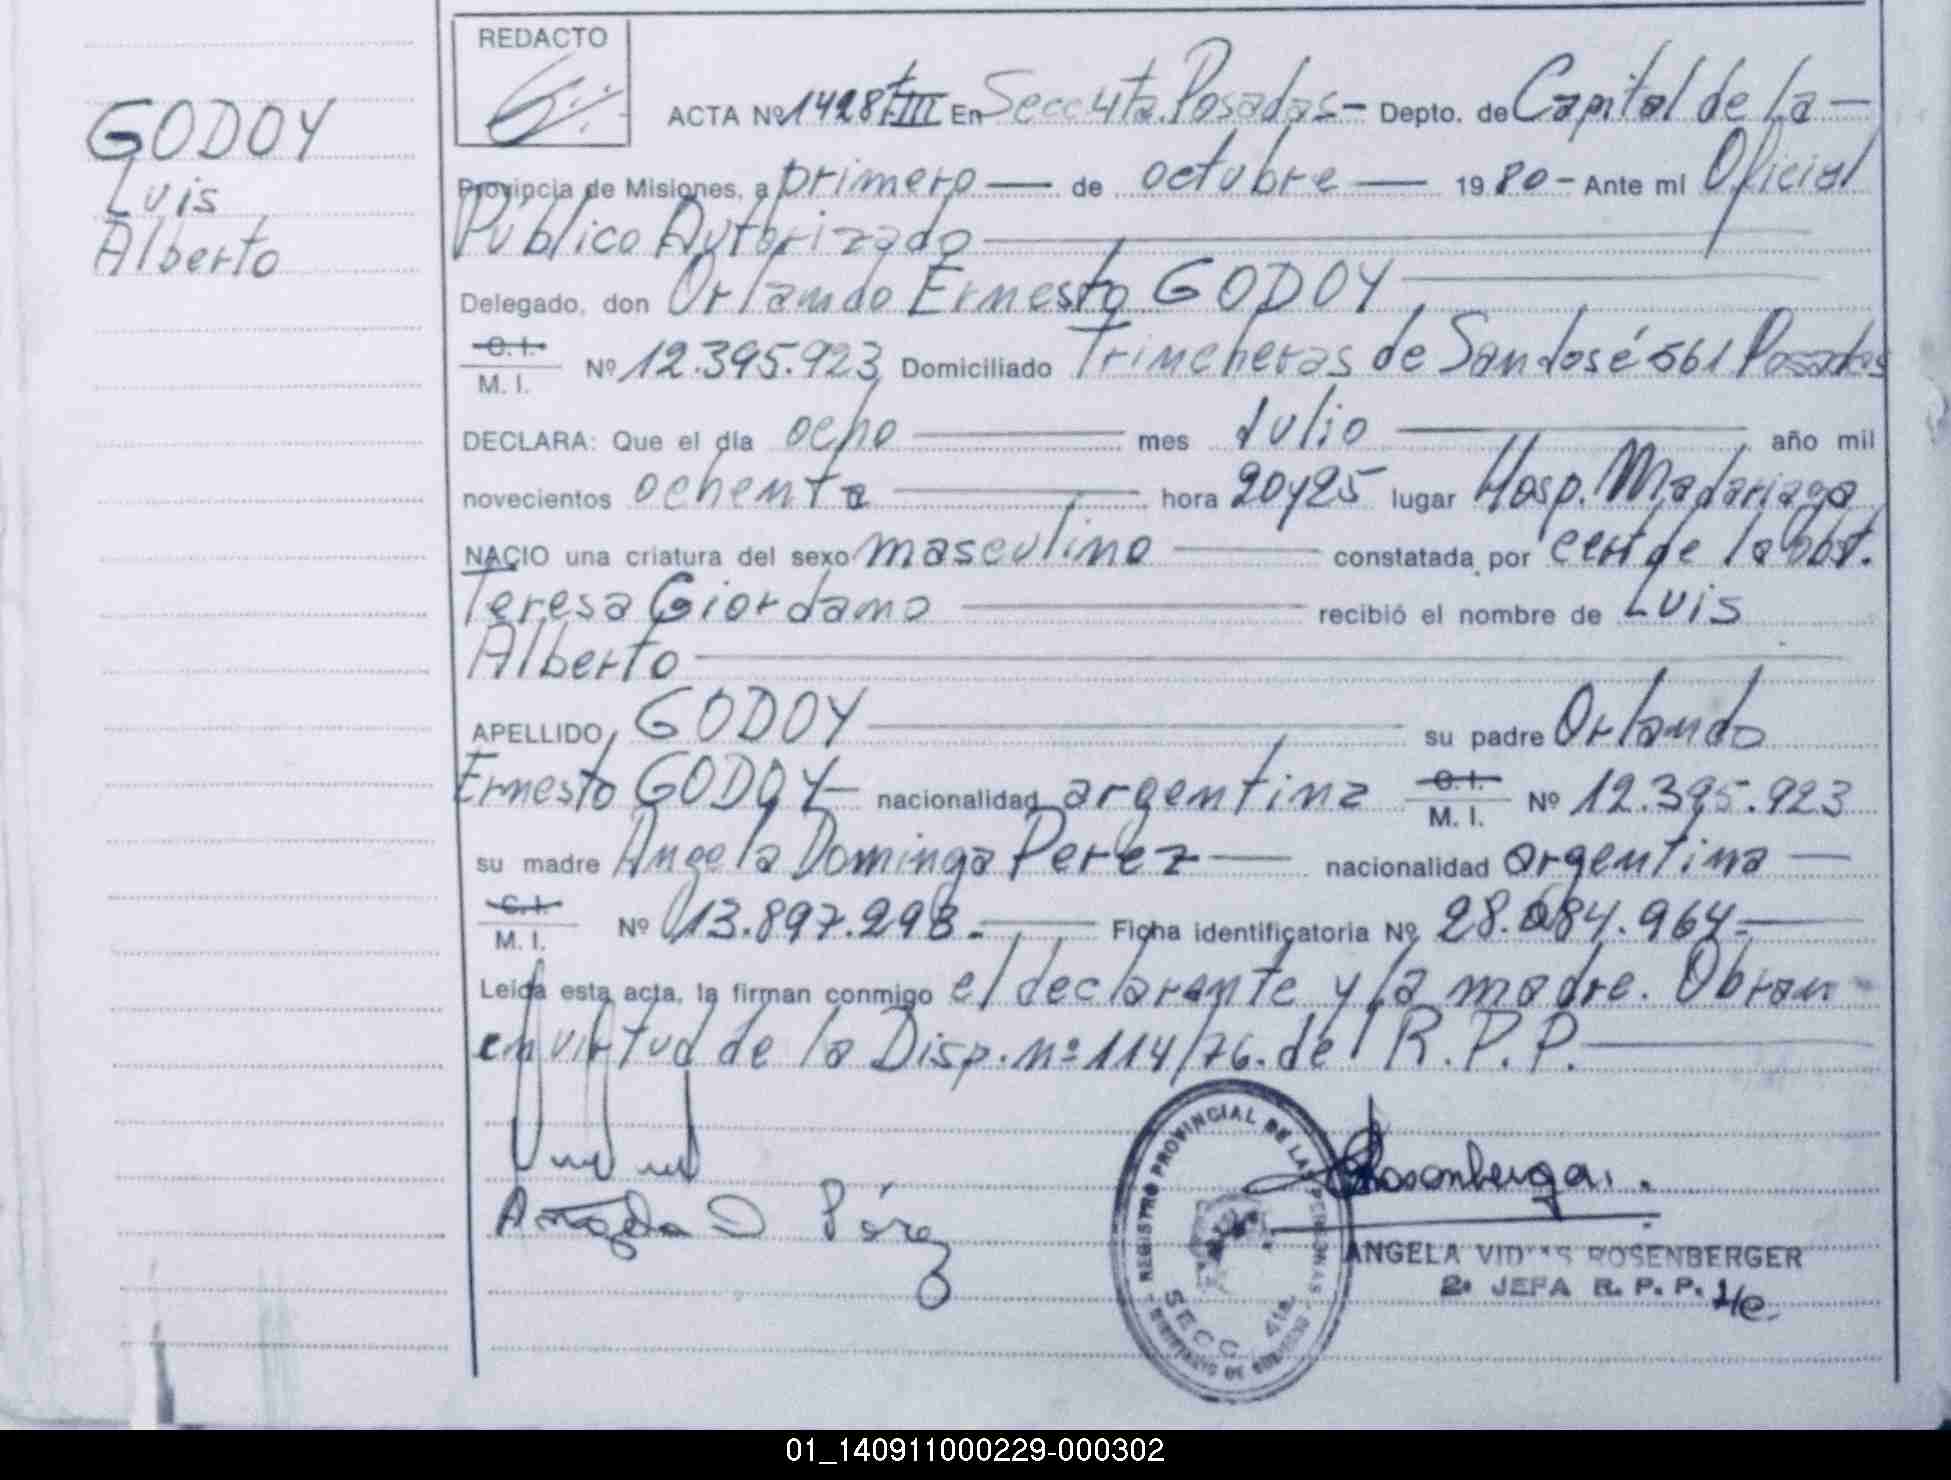 GODOY
Luis
Alberto
REDACTO
ACTA Nº 1428 T III En Secc 4ta. Posadas - Depto. de Capital de la -
Provincia de Misiones, a primero — de octubre — 1980 - Ante mí Oficial
Público Autorizado
Delegado, don Orlando Ernesto GODOY
C. I.
M. I. Nº 12.395.923 Domiciliado Trincheras de San José 561 Posadas
DECLARA: Que el día ocho mes Julio año mil
novecientos ochenta hora 20y25 lugar Hosp. Madariaga
NACIO una criatura del sexo masculino constatada por cert de la obst.
Teresa Giordano recibió el nombre de Luis
Alberto
APELLIDO GODOY su padre Orlando
Ernesto GODOY nacionalidad argentina C. I. M. I. Nº 12.395.923
su madre Angela Dominga Perez nacionalidad argentina
C. I.
M. I. Nº 13.897.293. Ficha identificatoria Nº 28.084.964.
Leída esta acta, la firman conmigo el declarante y la madre. Obran
en virtud de la Disp. nº 114/76. del R.P.P.
Angela D Pérez
REGISTRO PROVINCIAL DE LAS PERSONAS
SECC. 4ta.
Rosenberger.
ANGELA ROSENBERGER
2º JEFA R. P. P.
01_140911000229-000302